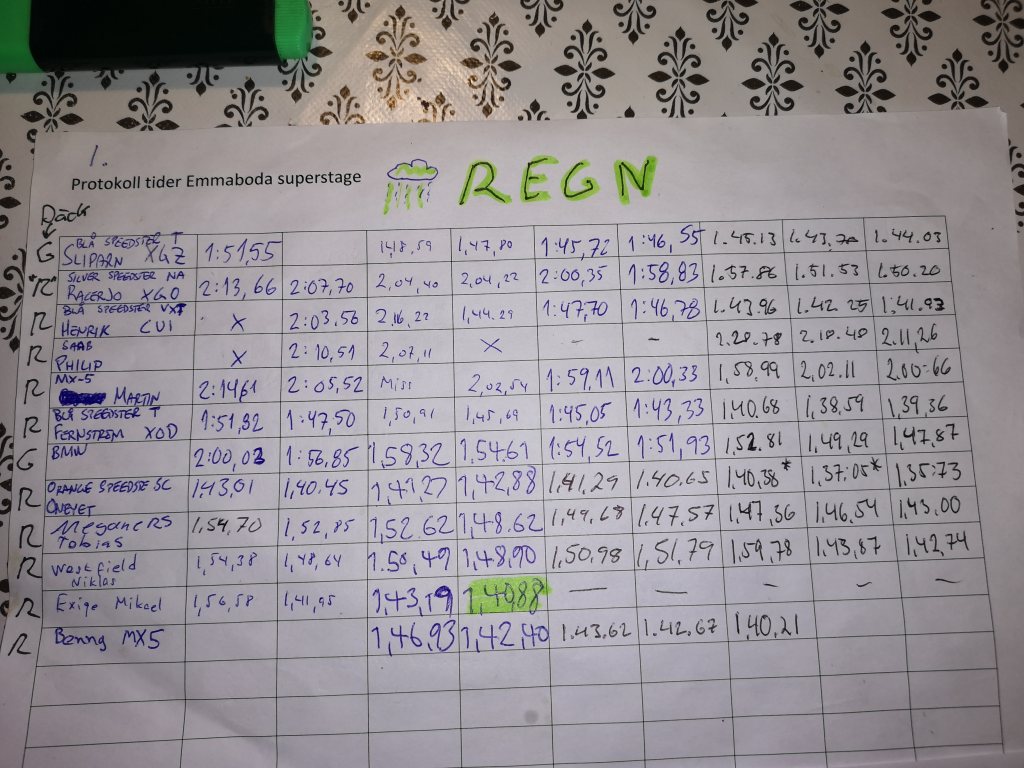 1.
Protokoll tider Emmaboda superstage
REGN
Däck
BLÅ SPEEDSTER T
G SLIPARN XGZ 1:51,55 1,48,59 1,47,80 1:45,72 1:46,55 1.45.13 1.44.03
SILVER SPEEDSTER NA
RACERJO XGO 2:13,66 2:07,70 2,04,40 2,04,22 2:00,35 1:58,83 1.57.86 1.51.53 1.50.20
BLÅ SPEEDSTER VXT
R HENRIK CUI X 2:03.56 2,16,22 1,44.29 1:47,70 1:46,78 1.43.96 1.42.25 1.41.93
SAAB
R PHILIP X 2:10,51 2,07,11 X - - 2.20.78 2.10.40 2.11,26
MX-5
R MARTIN 2:14,61 2:05,52 Miss 2,02,54 1:59,11 2:00,33 1,58,99 2,02.11 2.00.66
BLÅ SPEEDSTER T
R FERNSTRÖM XOD 1:51,92 1:47,50 1,50,91 1,45,69 1:45,05 1:43,33 1,40.68 1,38,59 1,39,36
G BMW 2:00,03 1:56,85 1,58,32 1,54,61 1:54,52 1:51,93 1,52.81 1,49,29 1,47,87
ORANGE SPEEDSTE SC
R ONEYET 1,43,01 1,40.45 1,41,27 1,42,88 1,41,29 1.40.65 1,40,38* 1,37:05* 1,35:73
Megane RS
R Tobias 1,54,70 1,52,85 1,52.62 1,48.62 1,49,68 1.47.57 1,47,36 1,46,54 1,43.00
Westfield
R Niklas 1,54,38 1,48,64 1.50,49 1,48,90 1,50,98 1,51,79 1,59,78 1,43,87 1,42,74
R Exige Mikael 1,56,58 1,41,95 1,43,19 1,40,88 — — — — —
R Benny MX5 1,46,93 1,42,40 1.43,62 1.42,67 1,40,21